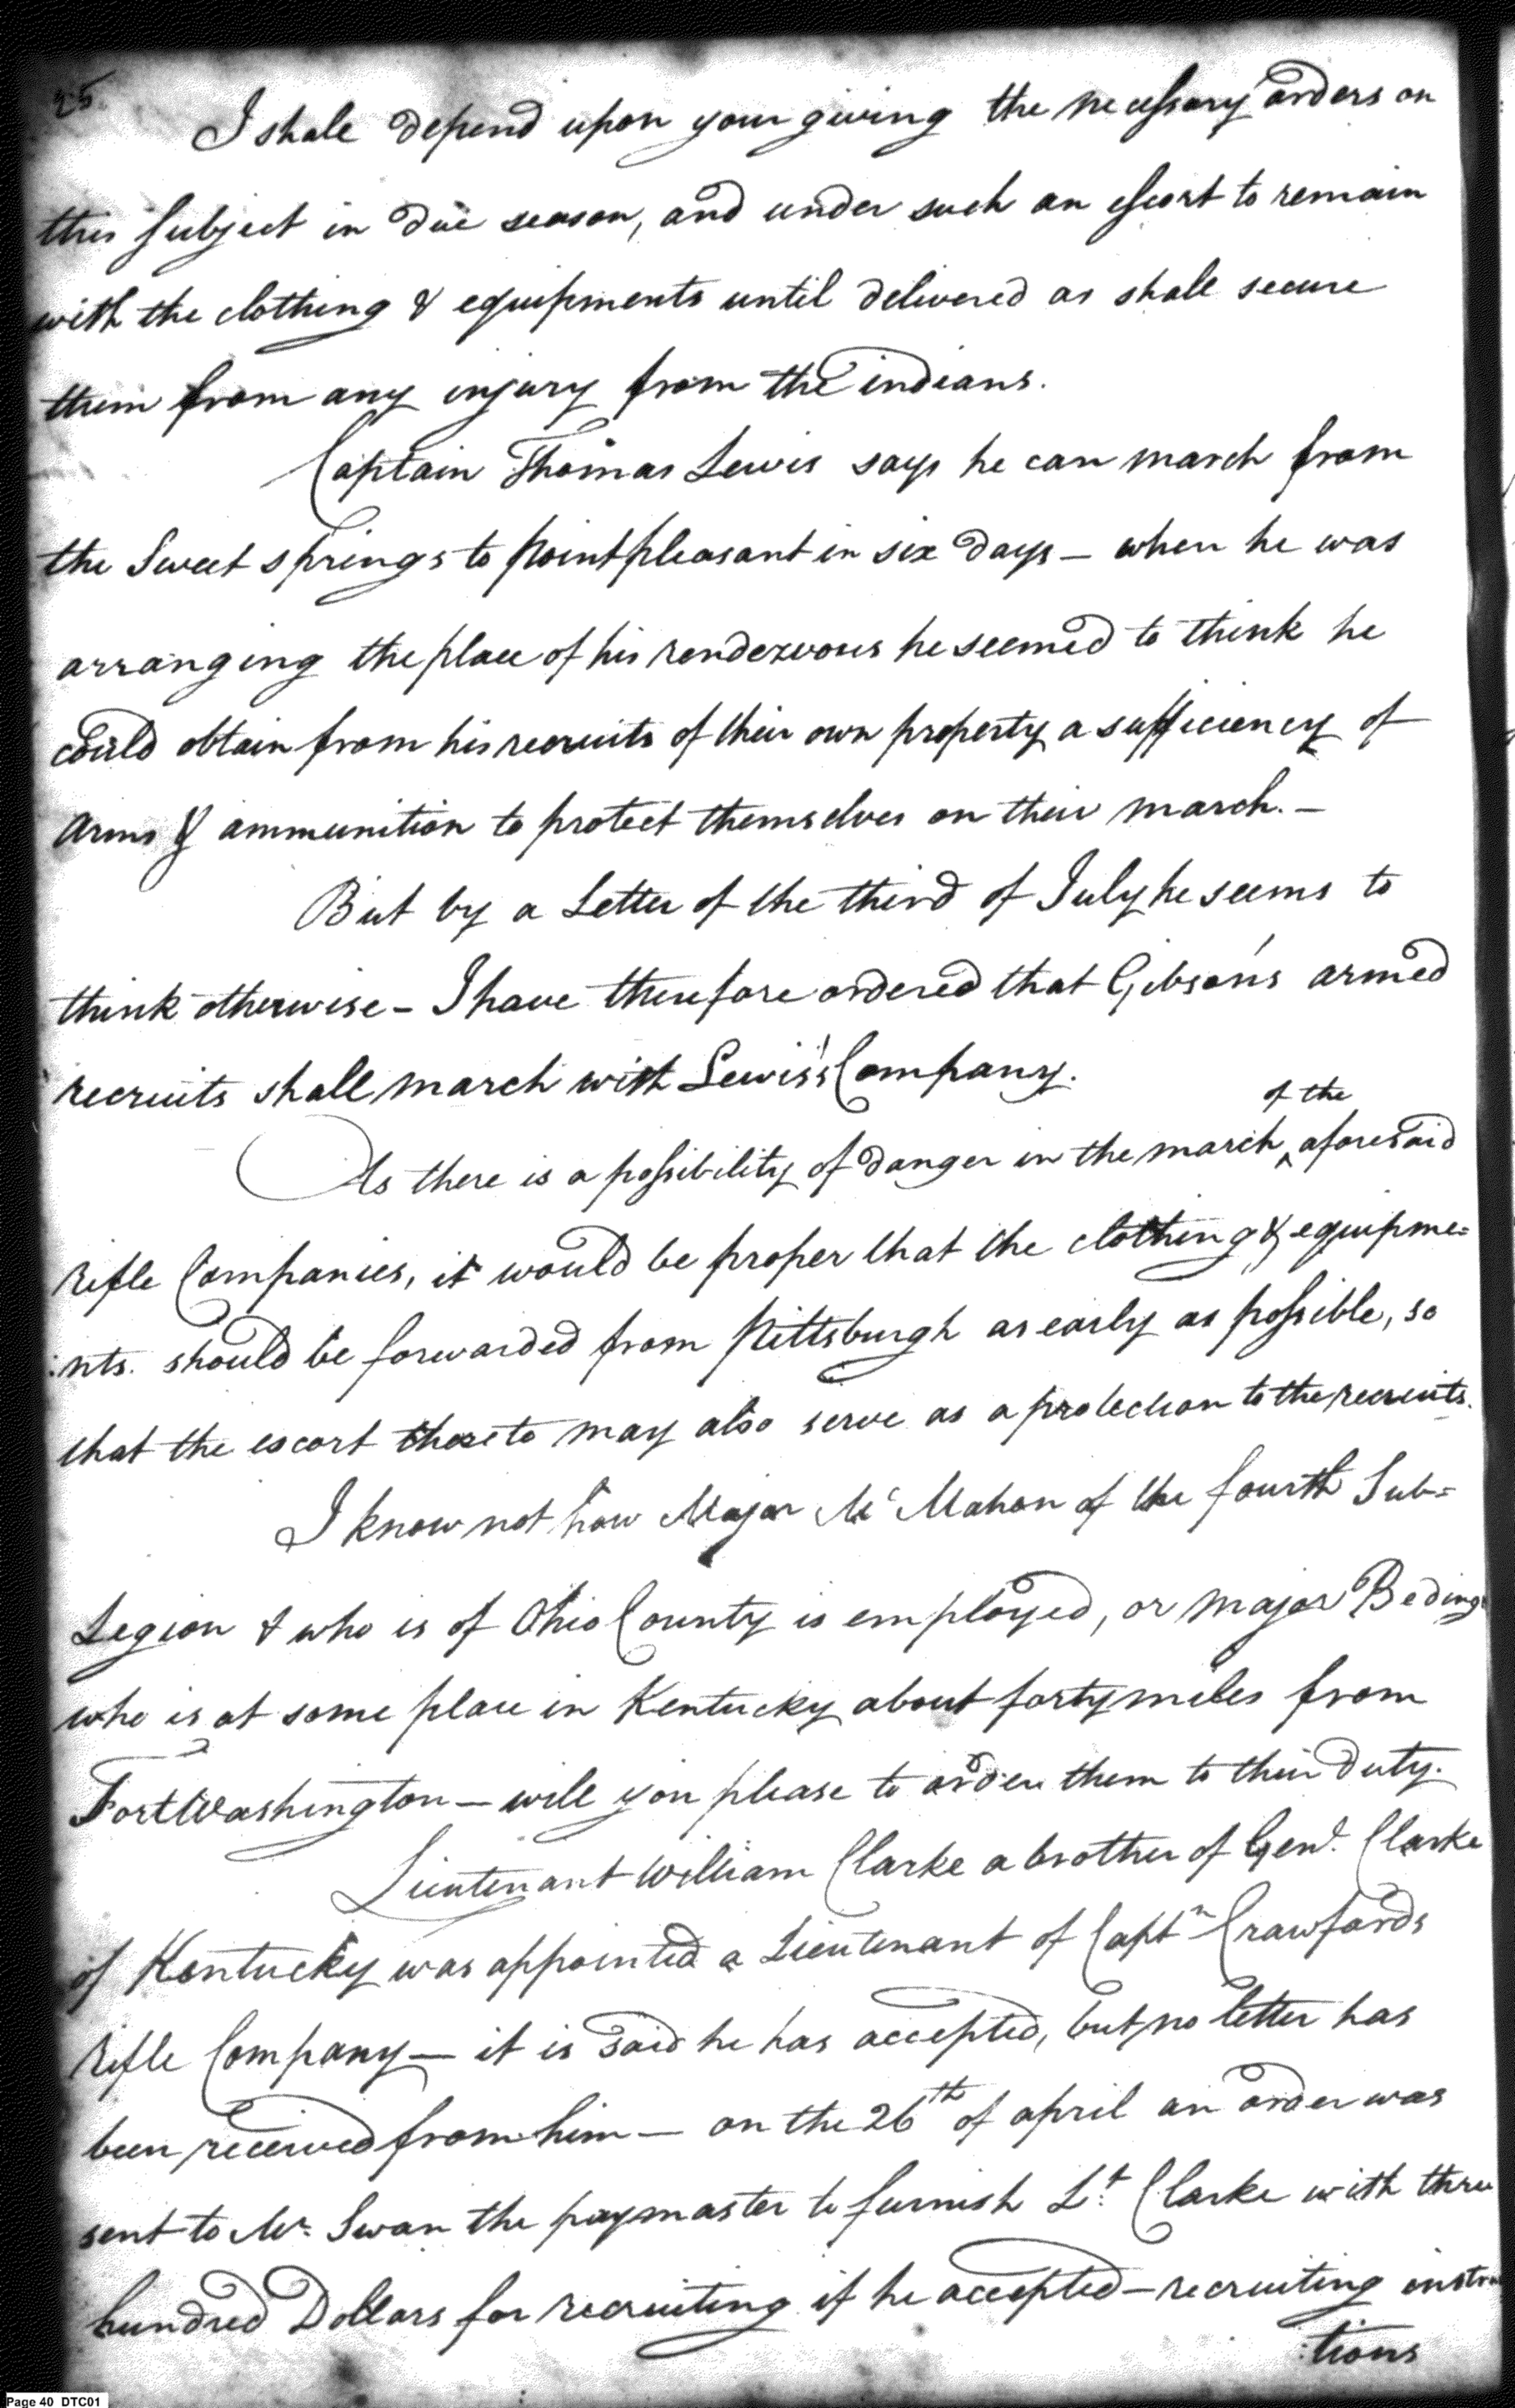 25.
I shall depend upon your giving the necessary orders on
this subject in due season, and under such an escort to remain
with the clothing & equipments until delivered as shall secure
them from any injury from the indians.
Captain Thomas Lewis says he can march from
the Sweet springs to point pleasant in six days — when he was
arranging the place of his rendezvous he seemed to think he
could obtain from his recruits of their own property a sufficiency of
Arms & ammunition to protect themselves on their march. —
But by a Letter of the third of July he seems to
think otherwise — I have therefore ordered that Gibson's armed
recruits shall march with Lewis's Company.
of the
As there is a possibility of danger in the march ^ aforesaid
Rifle Companies, it would be proper that the clothing & equipme=
:nts. should be forwarded from Pittsburgh as early as possible, so
that the escort thereto may also serve as a protection to the recruits.
I know not how Major Mc Mahon of the fourth Sub=
Legion & who is of Ohio County is employed, or major Beding
who is at some place in Kentucky about forty miles from
Fort Washington — will you please to order them to their duty.
Lieutenant William Clarke a brother of Genl. Clarke
of Kentucky was appointed a Lieutenant of Captn Crawfords
Rifle Company — it is said he has accepted, but no letter has
been received from him — on the 26th of april an order was
sent to Mr. Swan the paymaster to furnish Lt. Clarke with three
hundred Dollars for recruiting if he accepted — recruiting instru
:tions
Page 40 DTC01